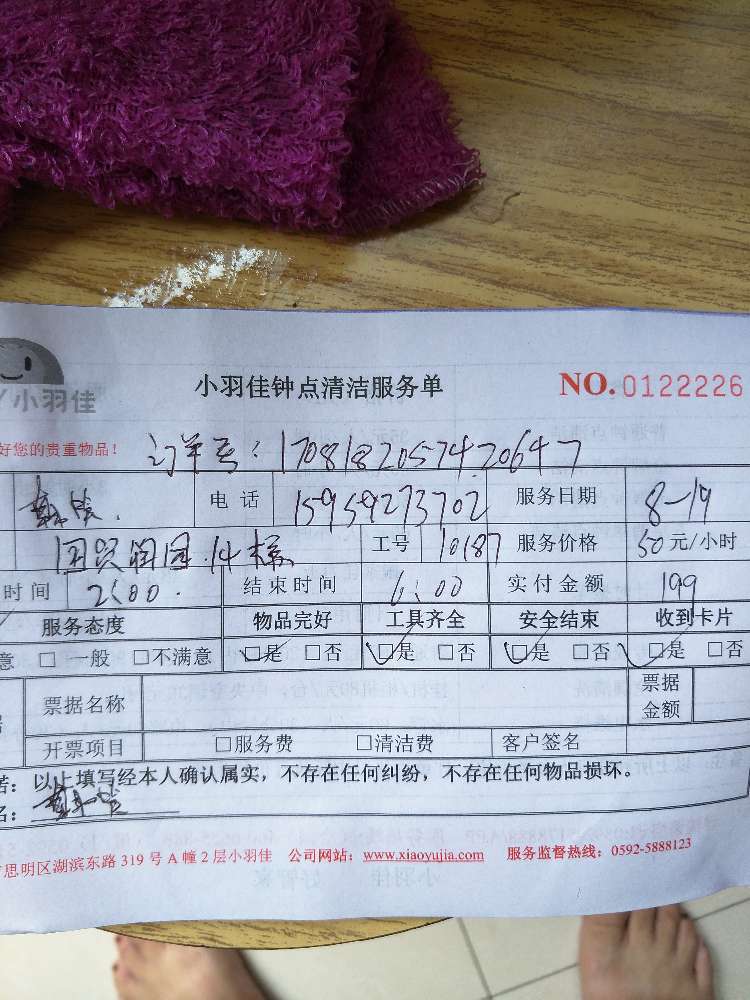 小羽佳钟点清洁服务单 NO. 0122226
小羽佳
好您的贵重物品！
订单号：170818205742０647
电话 15959273702 服务日期 8-19
国贸润园.14楼 工号 10187 服务价格 50元/小时
时间 2:00. 结束时间 6:00 实付金额 199
服务态度 物品完好 工具齐全 安全结束 收到卡片
意 □ 一般 □不满意 □是 □否 □是 □否 □是 □否 □是 □否
票据名称 票据金额
开票项目 □服务费 □清洁费 客户签名
若：以上填写经本人确认属实，不存在任何纠纷，不存在任何物品损坏。
名：
思明区湖滨东路319号A幢2层小羽佳 公司网站：www.xiaoyujia.com 服务监督热线：0592-5888123